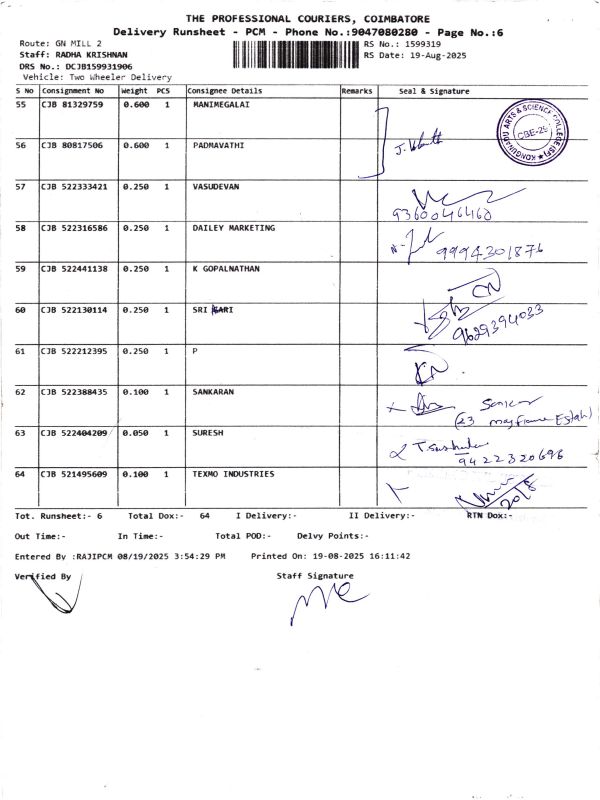 THE PROFESSIONAL COURIERS, COIMBATORE
Delivery Runsheet - PCM - Phone No.:9047080280 - Page No.:6
Route: GN MILL 2 RS No.: 1599319
Staff: RADHA KRISHNAN RS Date: 19-Aug-2025
DRS No.: DCJB159931906
Vehicle: Two Wheeler Delivery
S No Consignment No Weight PCS Consignee Details Remarks Seal & Signature
55 CJB 81329759 0.600 1 MANIMEGALAI
KONGUNADU ARTS & SCIENCE COLLEGE CBE-29
56 CJB 80817506 0.600 1 PADMAVATHI
57 CJB 522333421 0.250 1 VASUDEVAN
9360046460
58 CJB 522316586 0.250 1 DAILEY MARKETING
9994301876
59 CJB 522441138 0.250 1 K GOPALNATHAN
60 CJB 522130114 0.250 1 SRI HARI
9629394033
61 CJB 522212395 0.250 1 P
62 CJB 522388435 0.100 1 SANKARAN
63 CJB 522404209 0.050 1 SURESH
9422320696
64 CJB 521495609 0.100 1 TEXMO INDUSTRIES
20/8
Tot. Runsheet:- 6 Total Dox:- 64 I Delivery:- II Delivery:- RTN Dox:-
Out Time:- In Time:- Total POD:- Delvy Points:-
Entered By :RAJIPCM 08/19/2025 3:54:29 PM Printed On: 19-08-2025 16:11:42
Verified By Staff Signature